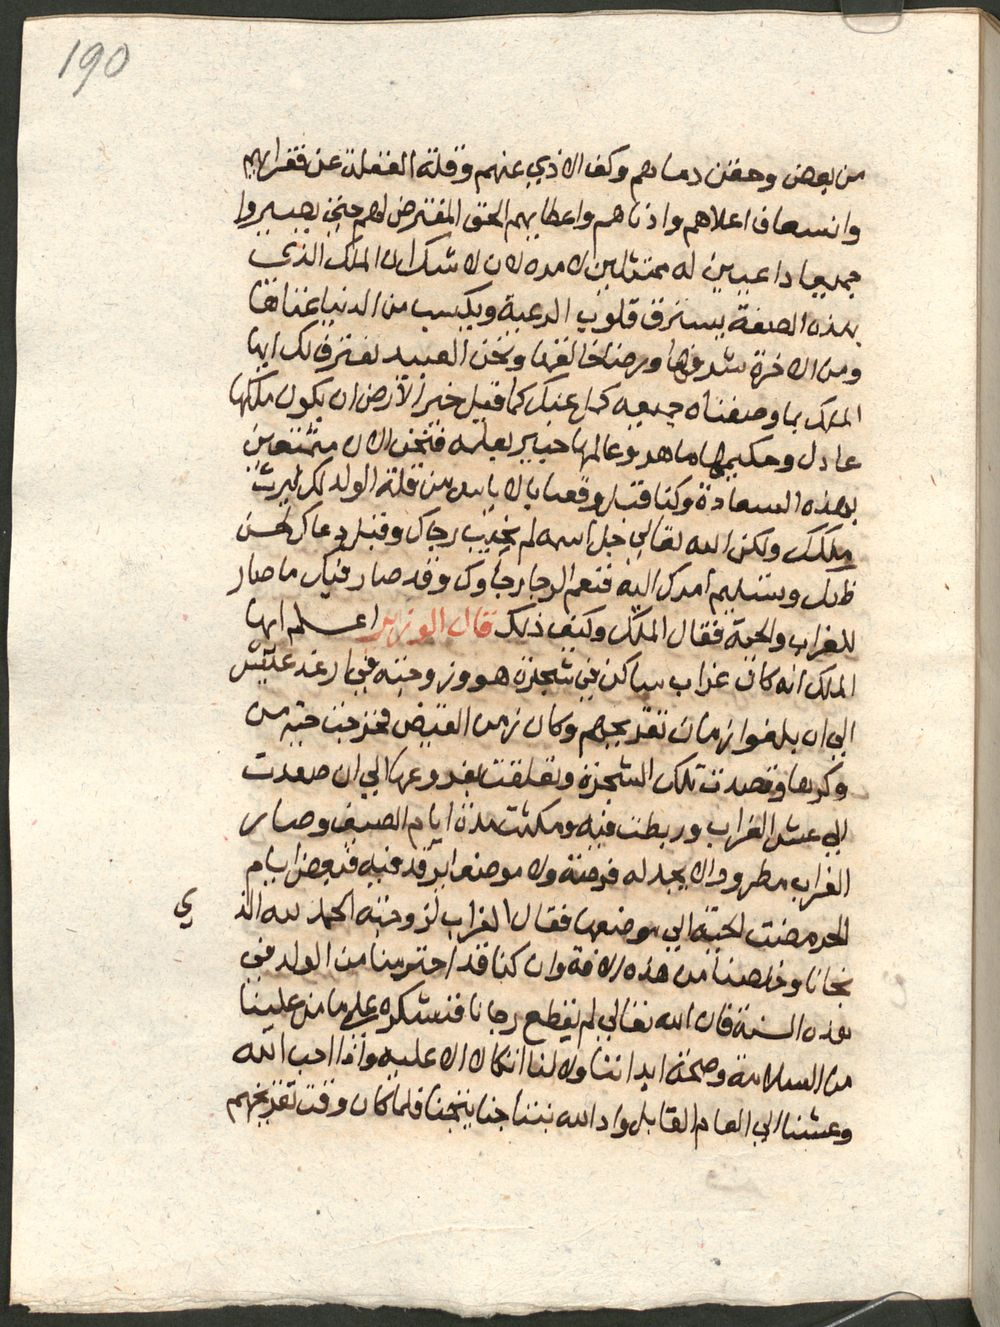 190
من بعض وحقن دماهم وكف الاذي عنهم وقلة الغفلة عن فقرايهم
وانسعاف اعلاهم وادناهم واعطايهم الحق المفترض لهم حتي يصيروا
جميعا داعيين له ممتثلين لامره لان لا شك ان الملك الذي
بهذه الصفة يسترق قلوب الرعية ويكسب من الدنيا غناها
ومن الاخرة شرفها ورضا خالقها ونحن العبيد نعترف لك ايها
الملك بما وصفناه جميعه كما قيل خير الارض ان يكون ملكها
عادل وحكيمها ماهر وعالمها خبير بعلمه فنحن الان متمتعين
بهذه السعادة وكنا قبل وقعنا بالاياس من قلة الولد لك ليرث
ملكك ولكن الله تعالي جل اسمه لم يخيب رجاك وقبل دعاك لحسن
ظنك وتسليم امرك اليه فنعم الرجا رجاوك وقد صار فيك ما صار
للغراب والحية فقال الملك وكيف ذلك قال الوزير اعلم ايها
الملك انه كان غراب ساكن في شجرة هو وزوجته في ارغد عيش
الي ان بلغوا زمان تفريخهم وكان زمن القيض فخرجت حية من
وكرها وقصدت تلك الشجرة وتعلقت بفروعها الي ان صعدت
الي عش الغراب وربطت فيه ومكثت مدة ايام الصيف وصار
الغراب مطرود لا يجد له فرصة ولا موضعا يرقد فيه فبعض ايام
الحر مضت الحية الي موضعها فقال الغراب لزوجته الحمد لله الذ ي
نجانا وخلصنا من هذه الافة وان كنا قد احترمنا من الولد في
هذه السنة فان الله تعالي لم يقطع رجانا فنشكره علي ما من علينا
من السلامة وصحة ابداننا ولا لنا اتكال الا عليه واذا احب الله
وعشنا الي العام القابل واد الله نتناجنا ينجنا فلما كان وقت تفريخهم